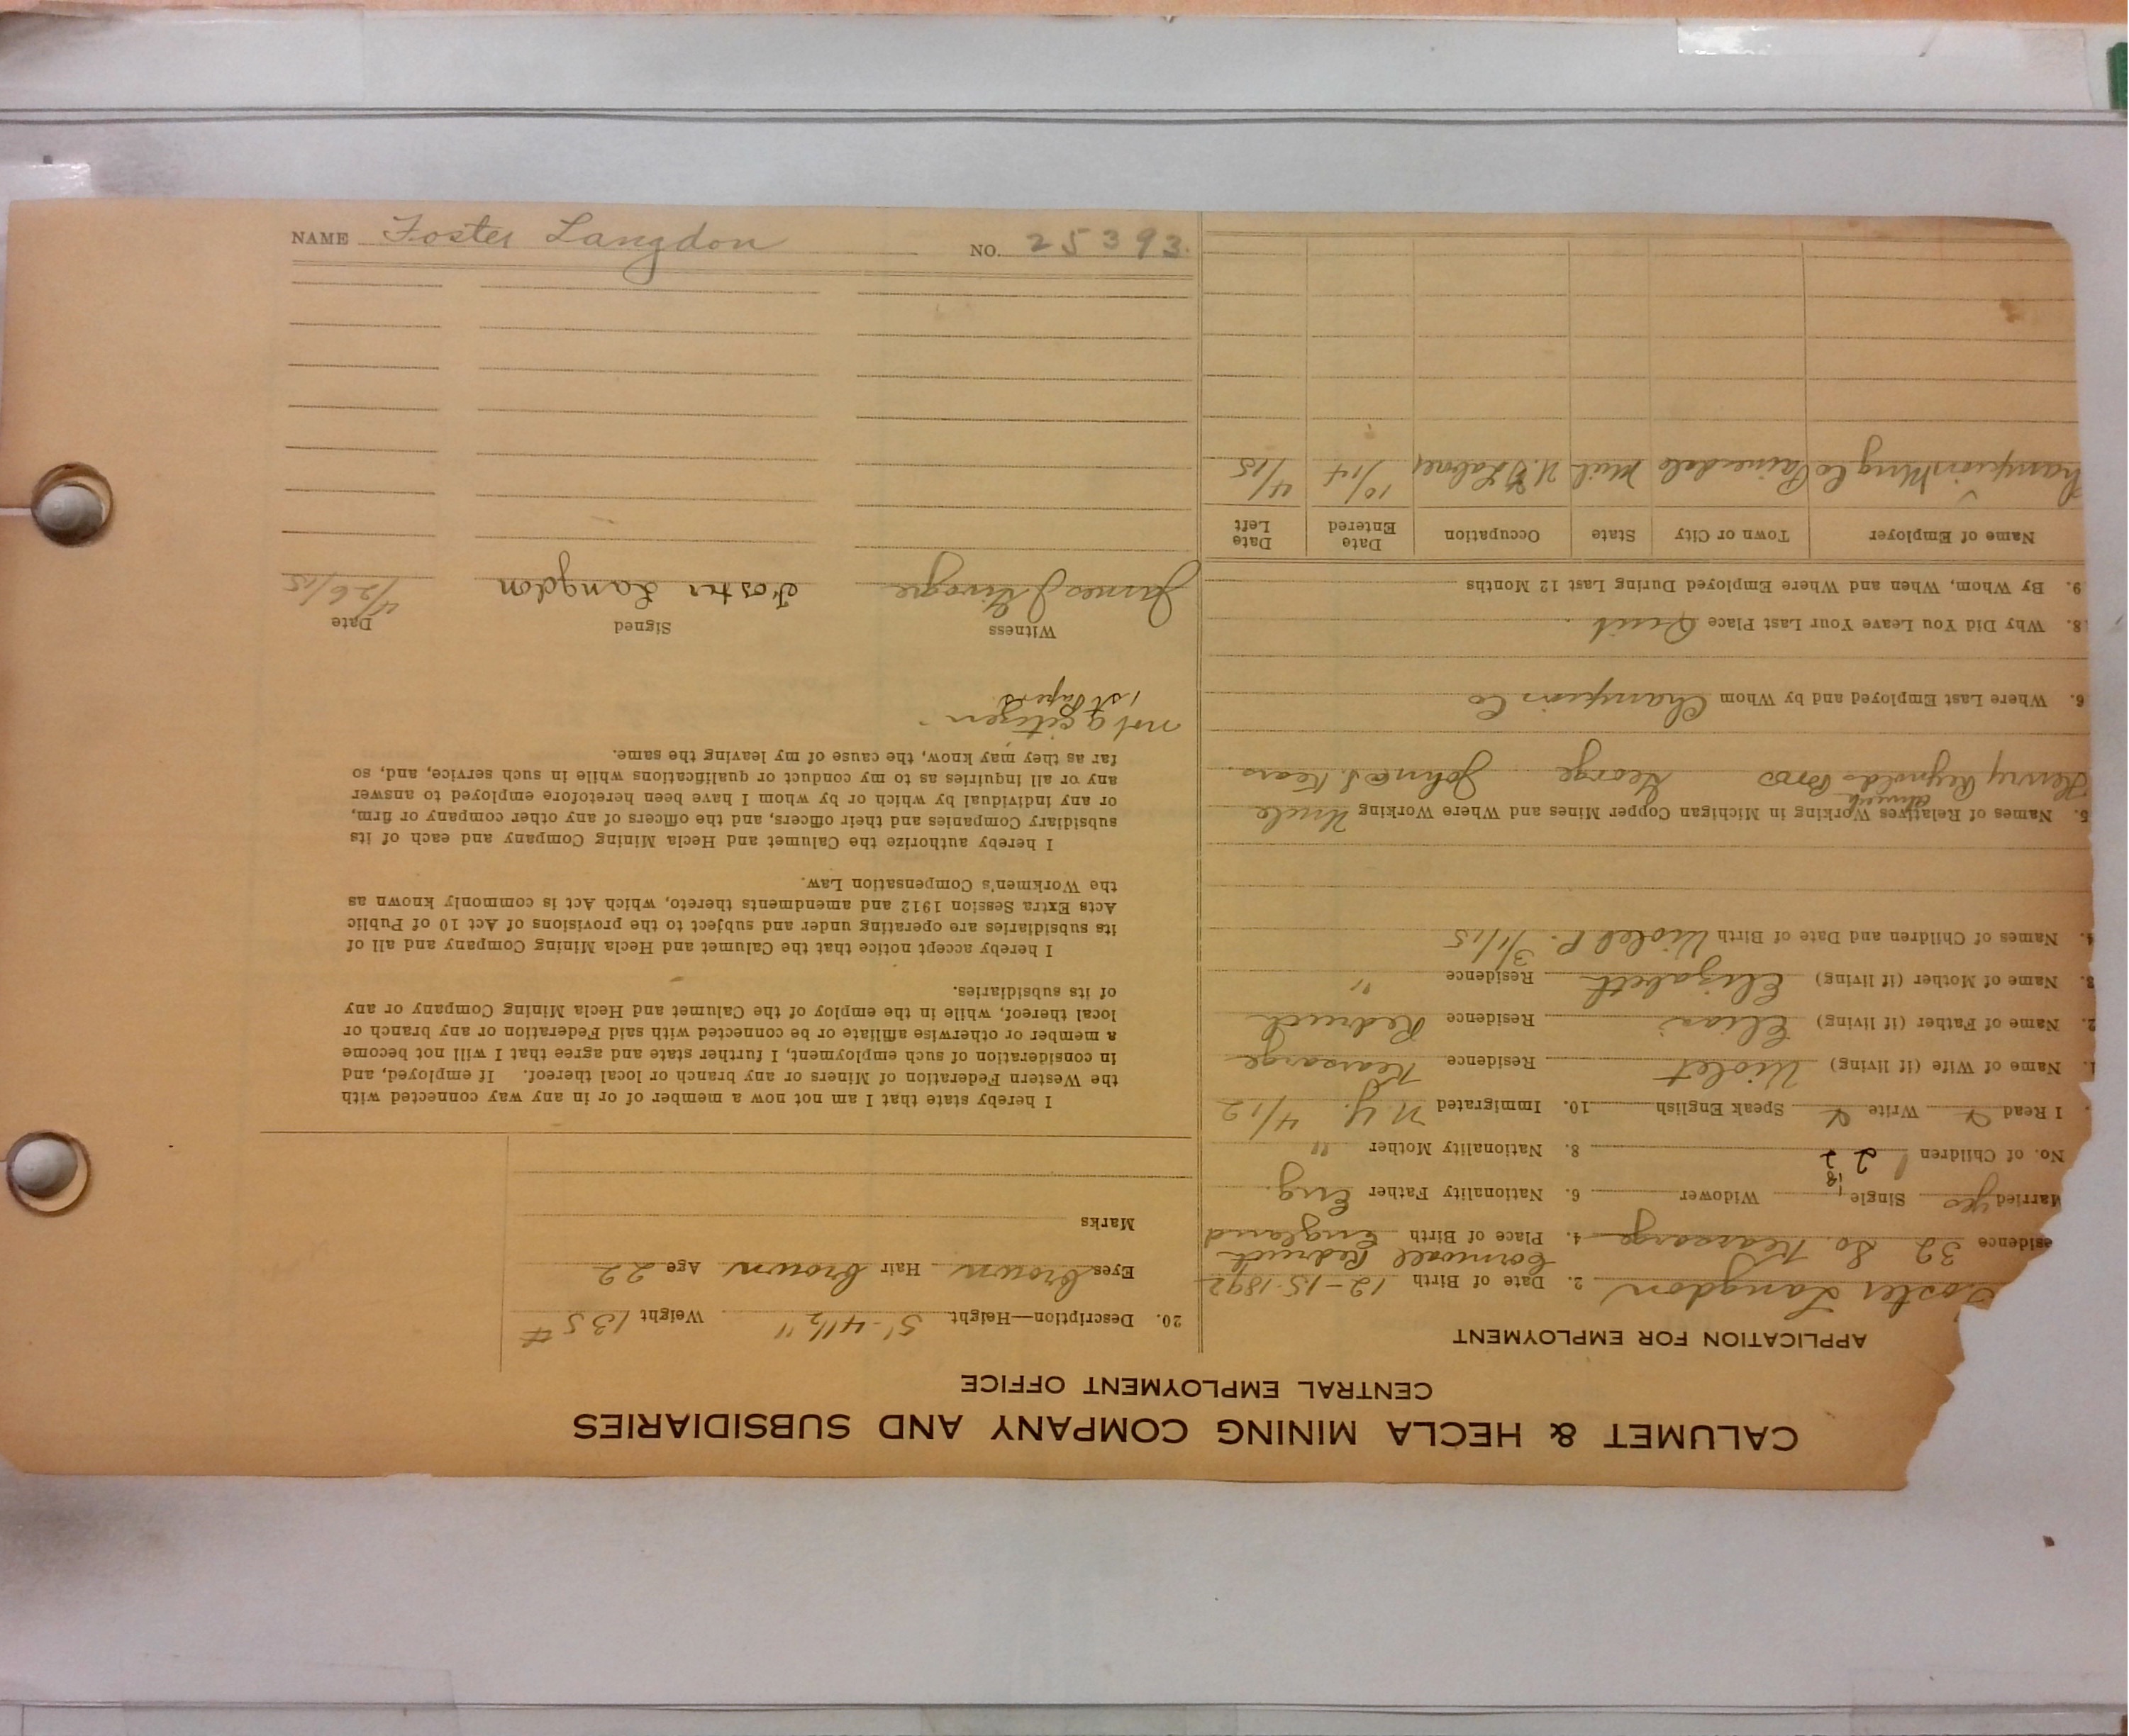 CALUMET & HECLA MINING COMPANY AND SUBSIDIARIES
CENTRAL EMPLOYMENT OFFICE
APPLICATION FOR EMPLOYMENT
Foster Langdon 2. Date of Birth 12-15-1892
Cornwall Redruth
esidence 32 So. Kearsarge 4. Place of Birth England
Married yes Single Widower 6. Nationality Father Eng.
No. of Children 8. Nationality Mother "
I Read Write Speak English 10. Immigrated N.Y. 4/12
1. Name of Wife (if living) Violet Residence Kearsarge
2. Name of Father (if living) Elias Residence Redruth
3. Name of Mother (if living) Elizabeth Residence "
4. Names of Children and Date of Birth Violet P. 3/1/15
5. Names of Relatives Working in Michigan Copper Mines and Where Working Uncle
Henry Reynolds Bros George John S. Kears.
6. Where Last Employed and by Whom Champion Co
8. Why Did You Leave Your Last Place Quit.
9. By Whom, When and Where Employed During Last 12 Months
Name of Employer Town or City State Occupation Date Entered Date Left
hampion Mng Co Painesdale Mich U.G Laborer 10/14 4/15
20. Description—Height 5'-4 1/2" Weight 135 #
Eyes brown Hair brown Age 22
Marks
I hereby state that I am not now a member of or in any way connected with
the Western Federation of Miners or any branch or local thereof. If employed, and
in consideration of such employment, I further state and agree that I will not become
a member or otherwise affiliate or be connected with said Federation or any branch or
local thereof, while in the employ of the Calumet and Hecla Mining Company or any
of its subsidiaries.
I hereby accept notice that the Calumet and Hecla Mining Company and all of
its subsidiaries are operating under and subject to the provisions of Act 10 of Public
Acts Extra Session 1912 and amendments thereto, which Act is commonly known as
the Workmen's Compensation Law.
I hereby authorize the Calumet and Hecla Mining Company and each of its
subsidiary Companies and their officers, and the officers of any other company or firm,
or any individual by which or by whom I have been heretofore employed to answer
any or all inquiries as to my conduct or qualifications while in such service, and, so
far as they may know, the cause of my leaving the same.
not a citizen -
1st papers
Witness Signed Date
James J Foster Langdon 4/26/15
NAME Foster Langdon NO. 25393.